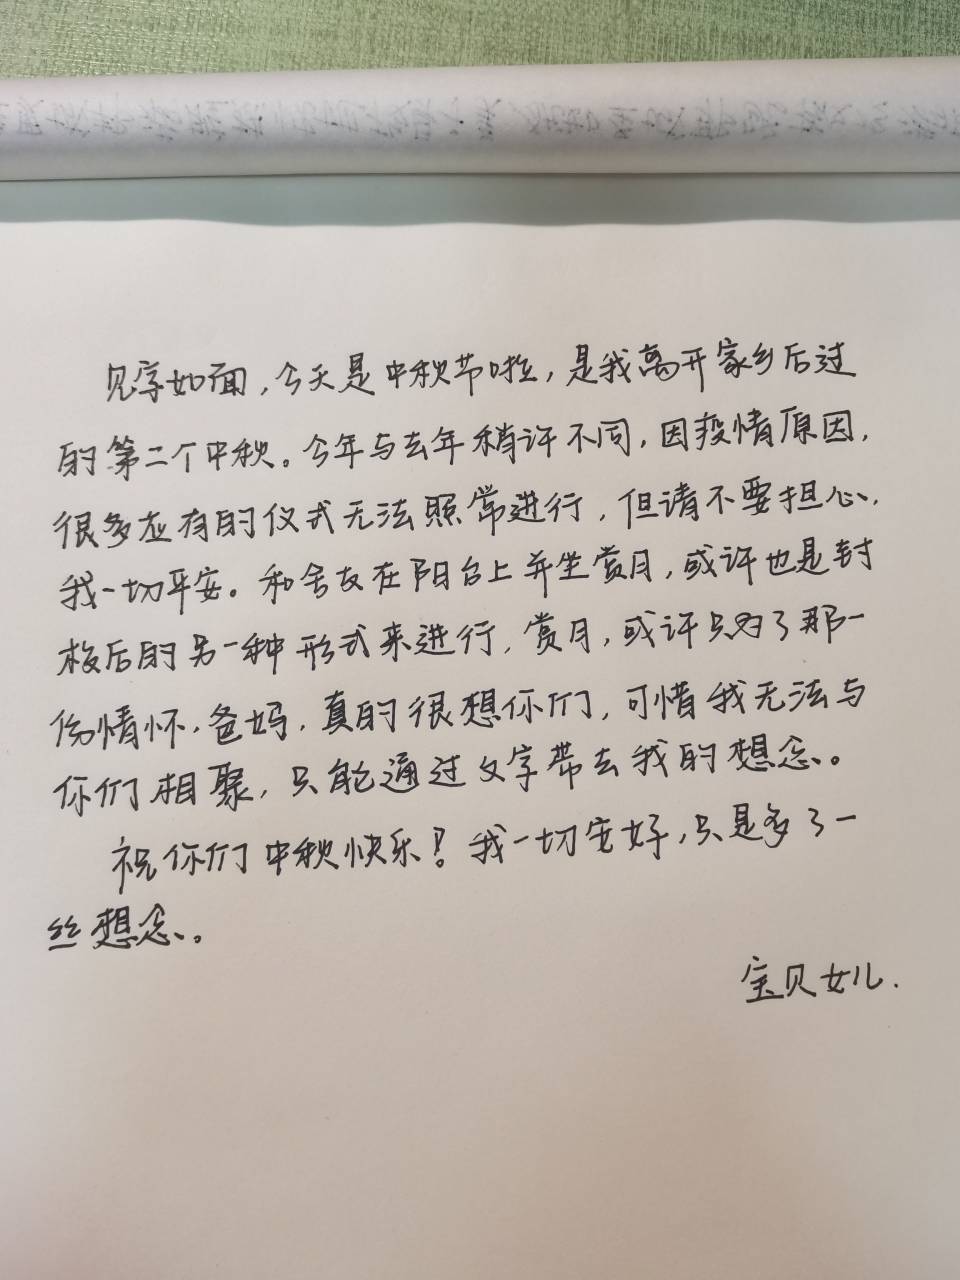 见字如面,今天是中秋节啦,是我离开家乡后过
的第二个中秋。今年与去年稍许不同,因疫情原因,
很多应有的仪式无法照常进行,但请不要担心,
我一切平安。和舍友在阳台上并坐赏月,或许也是封
校后的另一种形式来进行,赏月,或许只为了那一
份情怀,爸妈,真的很想你们,可惜我无法与
你们相聚,只能通过文字带去我的想念。
祝你们中秋快乐!我一切安好,只是多了一
丝想念。
宝贝女儿.